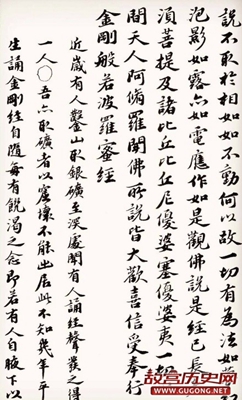 說不取於相如如不動何以故一切有為法如夢
泡影如露亦如電應作如是觀佛說是經已長
須菩提及諸比丘比丘尼優婆塞優婆夷一切
間天人阿脩羅聞佛所說皆大歡喜信受奉行
金剛般若波羅蜜經
近歲有人鑿山取銀礦至深處聞有人誦經聲發之得
一人云吾亦取礦者以窟壞不能出居此不知幾年平
生誦金剛經自隨每有飢渴之念即若有人自腋下以
故宫历史网